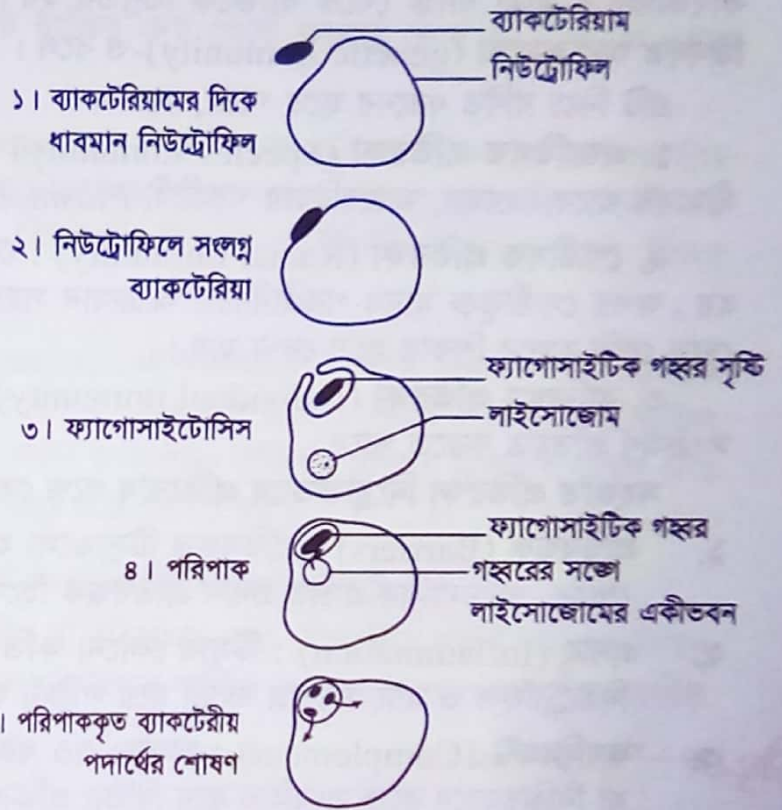 ব্যাকটেরিয়াম
নিউট্রোফিল
১। ব্যাকটেরিয়ামের দিকে
ধাবমান নিউট্রোফিল
২। নিউট্রোফিলে সংলগ্ন
ব্যাকটেরিয়া
ফ্যাগোসাইটিক গহ্বর সৃষ্টি
লাইসোজোম
৩। ফ্যাগোসাইটোসিস
ফ্যাগোসাইটিক গহ্বর
গহ্বরের সঙ্গে
লাইসোজোমের একীভবন
৪। পরিপাক
। পরিপাককৃত ব্যাকটেরীয়
পদার্থের শোষণ